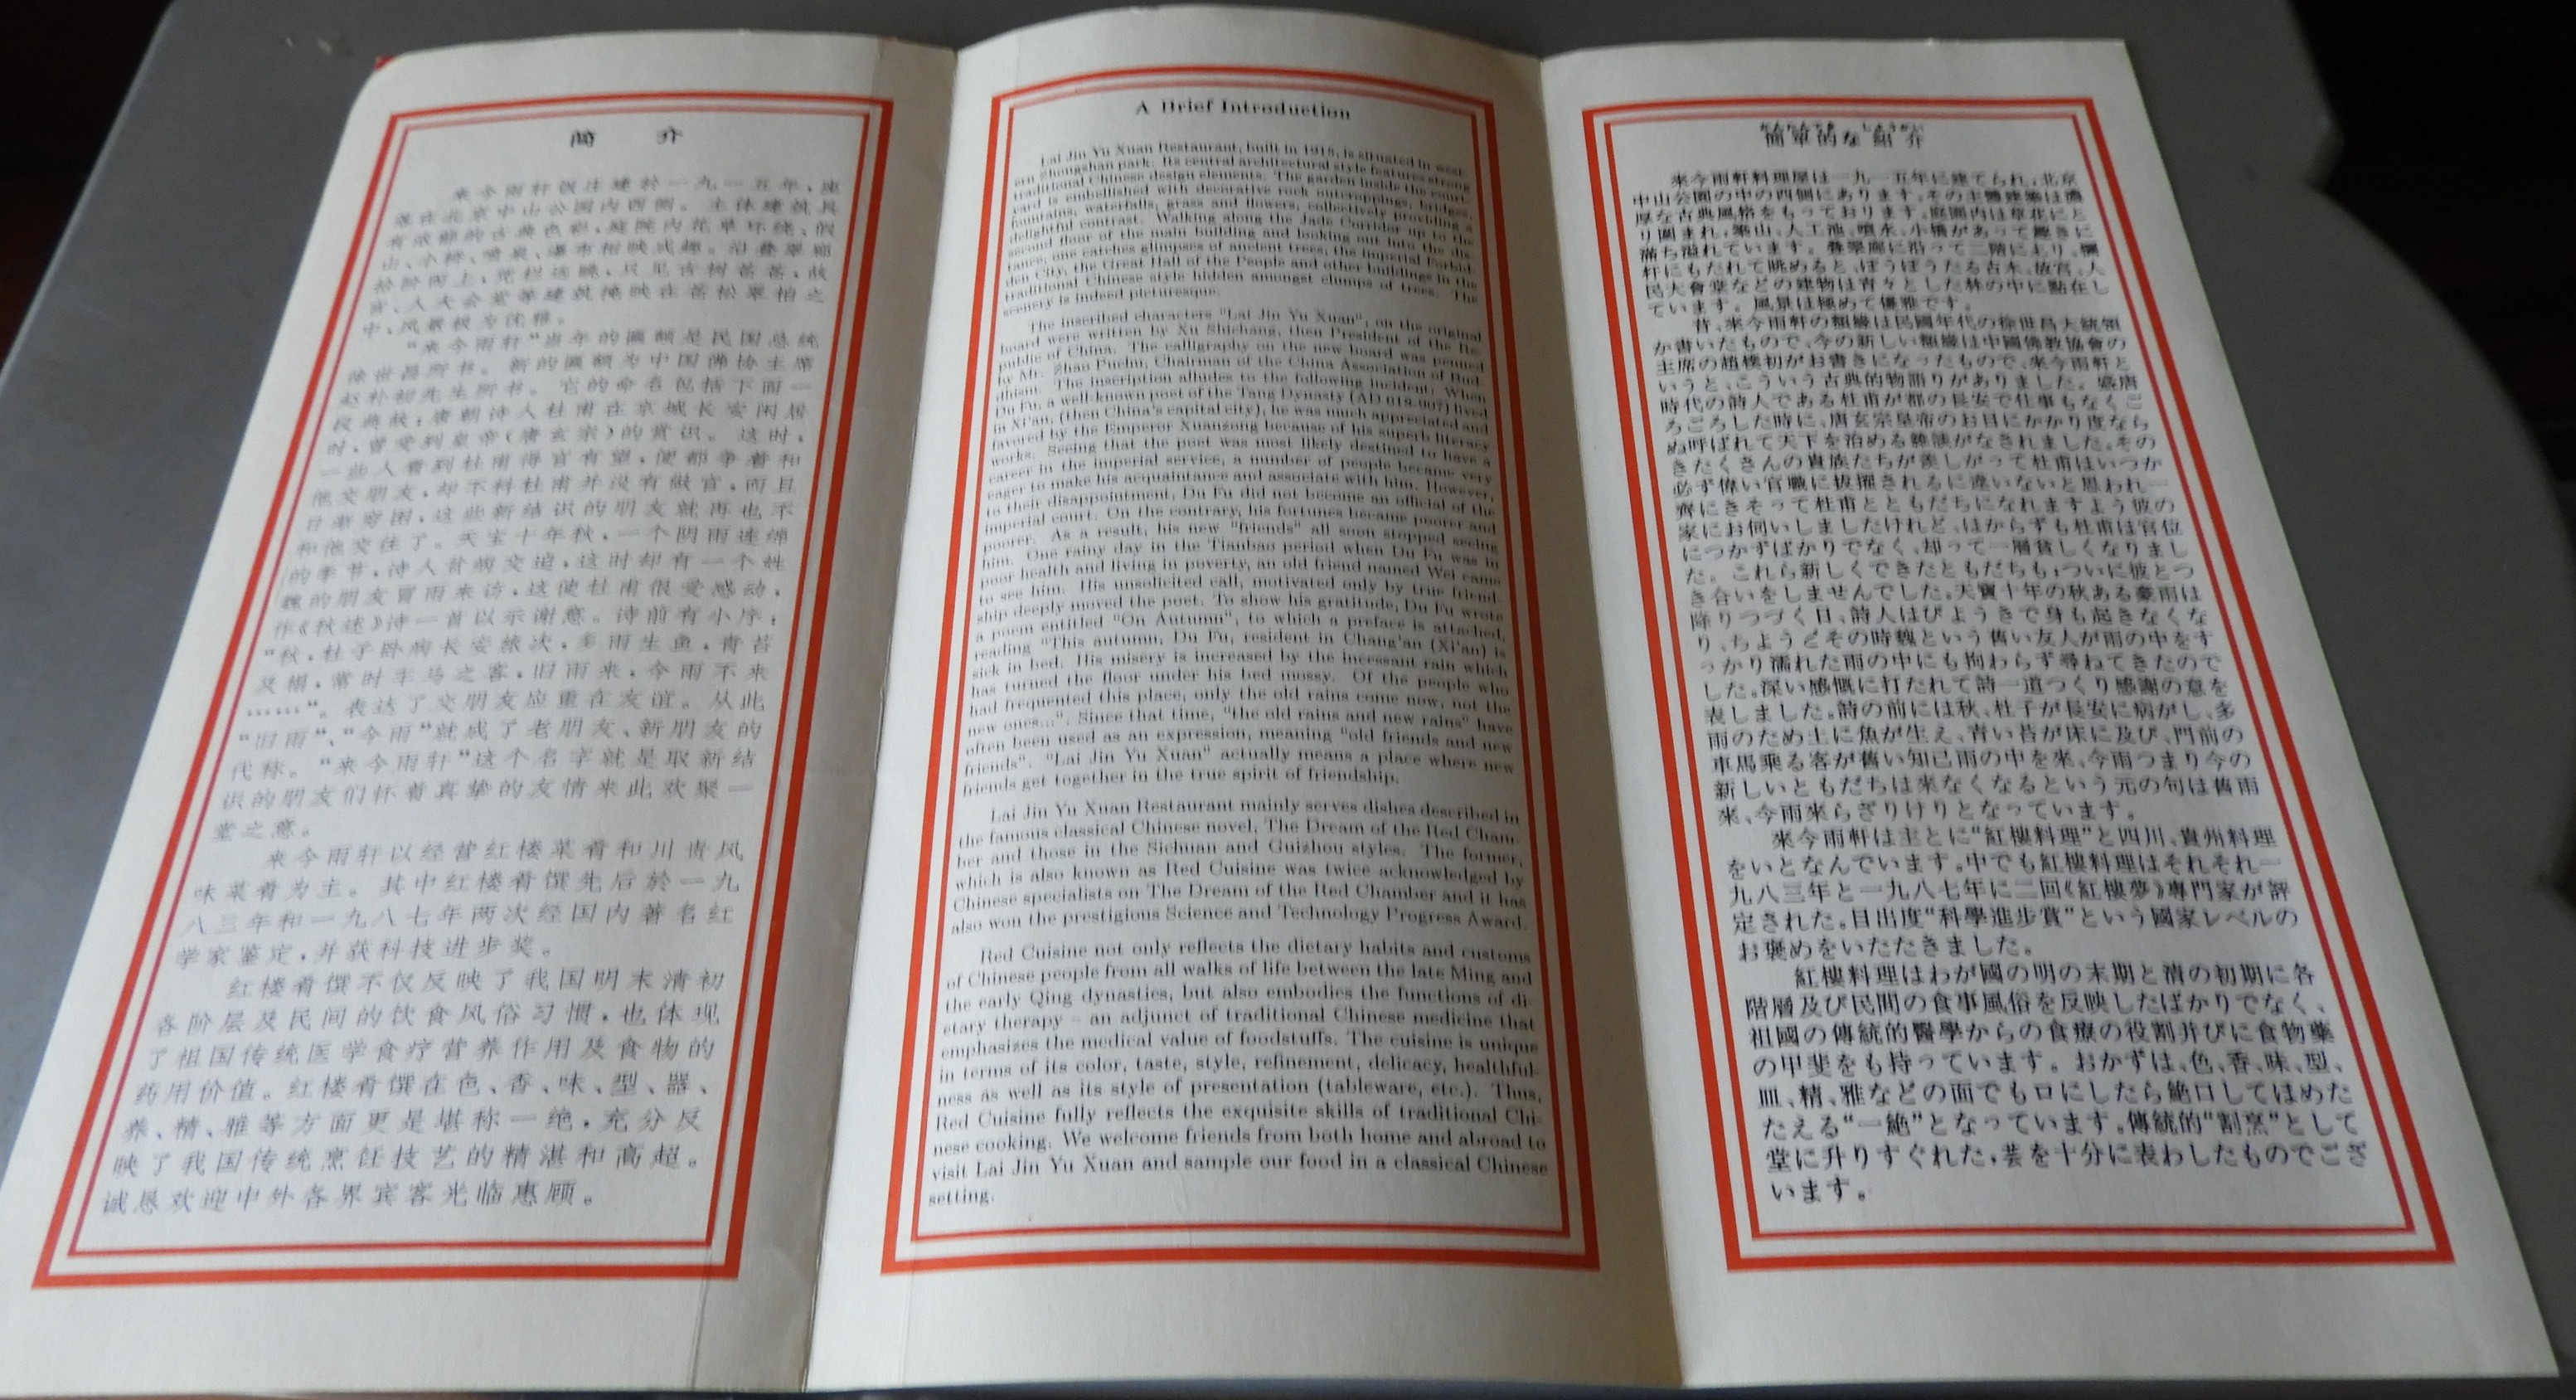 简 介
来今雨轩饭庄建於一九一五年，座
落在北京中山公园内西侧。主体建筑具
有浓郁的古典色彩，庭院内花草环绕、假
山、小桥、喷泉、瀑布相映成趣。沿叠翠廊
拾阶而上，凭栏远眺，只见古树苍苍，故
宫、人大会堂等建筑掩映在苍松翠柏之
中，风景极为优雅。
“来今雨轩”当年的匾额是民国总统
徐世昌所书。新的匾额为中国佛协主席
赵朴初先生所书。它的命名包括下面一
段典故：唐朝诗人杜甫在京城长安闲居
时，曾受到皇帝(唐玄宗)的赏识。这时，
一些人看到杜甫得官有望，便都争着和
他交朋友，却不料杜甫并没有做官，而且
日渐穷困，这些新结识的朋友就再也不
和他交往了。天宝十年秋，一个阴雨连绵
的季节，诗人贫病交迫，这时却有一个姓
魏的朋友冒雨来访，这使杜甫很受感动，
作《秋述》诗一首以示谢意。诗前有小序：
“秋，杜子卧病长安旅次，多雨生鱼，青苔
及榻，常时车马之客，旧雨来，今雨不来
……“。表达了交朋友应重在友谊。从此
“旧雨”、“今雨”就成了老朋友、新朋友的
代称。“来今雨轩”这个名字就是取新结
识的朋友们怀着真挚的友情来此欢聚一
堂之意。
来今雨轩以经营红楼菜肴和川贵风
味菜肴为主。其中红楼肴馔先后於一九
八三年和一九八七年两次经国内著名红
学家鉴定，并获科技进步奖。
红楼肴馔不仅反映了我国明末清初
各阶层及民间的饮食风俗习惯，也体现
了祖国传统医学食疗营养作用及食物的
药用价值。红楼肴馔在色、香、味、型、器、
养、精、雅等方面更是堪称一绝，充分反
映了我国传统烹饪技艺的精湛和高超。
诚恳欢迎中外各界宾客光临惠顾。
A Brief Introduction
Lai Jin Yu Xuan Restaurant, built in 1915, is situated in west-
ern Zhongshan park. Its central architectural style features strong
traditional Chinese design elements. The garden inside the court-
yard is embellished with decorative rock outcroppings, bridges,
fountains, waterfalls, grass and flowers, collectively providing a
delightful contrast. Walking along the Jade Corridor up to the
second floor of the main building and looking out into the dis-
tance, one catches glimpses of ancient trees; the Imperial Forbid-
den City, the Great Hall of the People and other buildings in the
traditional Chinese style hidden amongst clumps of trees. The
scenery is indeed picturesque.
The inscribed characters "Lai Jin Yu Xuan", on the original
board were written by Xu Shichang, then President of the Re-
public of China. The calligraphy on the new board was penned
by Mr. Zhao Puchu, Chairman of the China Association of Bud-
dhism. The inscription alludes to the following incident: When
Du Fu, a well-known poet of the Tang Dynasty (AD 618-907) lived
in Xi'an, (then China's capital city), he was much appreciated and
favored by the Emperor Xuanzong because of his superb literacy
works. Seeing that the poet was most likely destined to have a
career in the imperial service, a number of people became very
eager to make his acquaintance and associate with him. However,
to their disappointment, Du Fu did not become an official of the
imperial court. On the contrary, his fortunes became poorer and
poorer. As a result, his new "friends" all soon stopped seeing
him. One rainy day in the Tianbao period when Du Fu was in
poor health and living in poverty, an old friend named Wei came
to see him. His unsolicited call, motivated only by true friend-
ship deeply moved the poet. To show his gratitude, Du Fu wrote
a poem entitled "On Autumn", to which a preface is attached,
reading "This autumn, Du Fu, resident in Chang'an (Xi'an) is
sick in bed. His misery is increased by the incessant rain which
has turned the floor under his bed mossy. Of the people who
had frequented this place, only the old rains come now, not the
new ones...". Since that time, "the old rains and new rains" have
often been used as an expression, meaning "old friends and new
friends". "Lai Jin Yu Xuan" actually means a place where new
friends get together in the true spirit of friendship.
Lai Jin Yu Xuan Restaurant mainly serves dishes described in
the famous classical Chinese novel, The Dream of the Red Cham-
ber and those in the Sichuan and Guizhou styles. The former,
which is also known as Red Cuisine was twice acknowledged by
Chinese specialists on The Dream of the Red Chamber and it has
also won the prestigious Science and Technology Progress Award.
Red Cuisine not only reflects the dietary habits and customs
of Chinese people from all walks of life between the late Ming and
the early Qing dynasties, but also embodies the functions of di-
etary therapy – an adjunct of traditional Chinese medicine that
emphasizes the medical value of foodstuffs. The cuisine is unique
in terms of its color, taste, style, refinement, delicacy, healthful-
ness as well as its style of presentation (tableware, etc.). Thus,
Red Cuisine fully reflects the exquisite skills of traditional Chi-
nese cooking. We welcome friends from both home and abroad to
visit Lai Jin Yu Xuan and sample our food in a classical Chinese
setting.
簡単的な紹介
來今雨軒料理屋は一九一五年に建てられ，北京
中山公園の中の西側にあります。その主體建築は濃
厚な古典風格をもっております。庭園内は草花にと
り囲まれ，築山、人工池、噴水、小橋があって趣きに
満ち溢れています。疊翠廊に沿って二階に上り、欄
杆にもたれて眺めると、ぼうぼうたる古木、故宮、人
民大會堂などの建物は青々とした林の中に點在し
ています。風景は極めて優雅です。
昔、來今雨軒の額縁は民國年代の徐世昌大統領
が書いたもので、今の新しい額縁は中國佛教協會の
主席の趙樸初がお書きになったもので、來今雨軒と
いうと、こういう古典的物語りがありました。盛唐
時代の詩人である杜甫が都の長安で仕事もなくご
ろごろした時に、唐玄宗皇帝のお目にかかり度なら
ぬ呼ばれて天下を治める雑談がなされました。その
きたくさんの貴族たちが羨しがって杜甫はいつか
必ず偉い官職に抜擢されるに違いないと思われ一
齊にきそって杜甫とともだちになれますよう彼の
家にお伺いしましたけれど、はからずも杜甫は官位
につかずばかりでなく、却って一層貧しくなりまし
た。これら新しくできたともだちも，ついに彼とつ
き合いをしませんでした。天寶十年の秋ある豪雨は
降りつづく日、詩人はびようきで身も起きなくな
り、ちようどその時魏という舊い友人が雨の中をす
っかり濡れた雨の中にも拘わらず尋ねてきたので
した。深い感慨に打たれて詩一道つくり感謝の意を
表しました。詩の前には秋、杜子が長安に病がし、多
雨のため土に魚が生え、青い苔が床に及び、門前の
車馬乗る客が舊い知己雨の中を來、今雨つまり今の
新しいともだちは来なくなるという元の句は舊雨
來、今雨来らぎりけりとなっています。
來今雨軒は主とに“紅樓料理”と四川、貴州料理
をいとなんでいます。中でも紅樓料理はそれそれ一
九八三年と一九八七年に二回《紅樓夢》專門家が評
定された。目出度“科學進步賞”という國家レベルの
お褒めをいたたきました。
紅樓料理はわが國の明の末期と清の初期に各
階層及び民間の食事風俗を反映したばかりでなく、
祖國の傳統的醫學からの食療の役割并びに食物藥
の甲斐をも持っています。おかずは、色、香、味、型、
皿、精、雅などの面でも口にしたら絶口してほめた
たえる“一絶”となっています。傳統的“割烹”として
堂に升りすぐれた，芸を十分に表わしたものでござ
います。